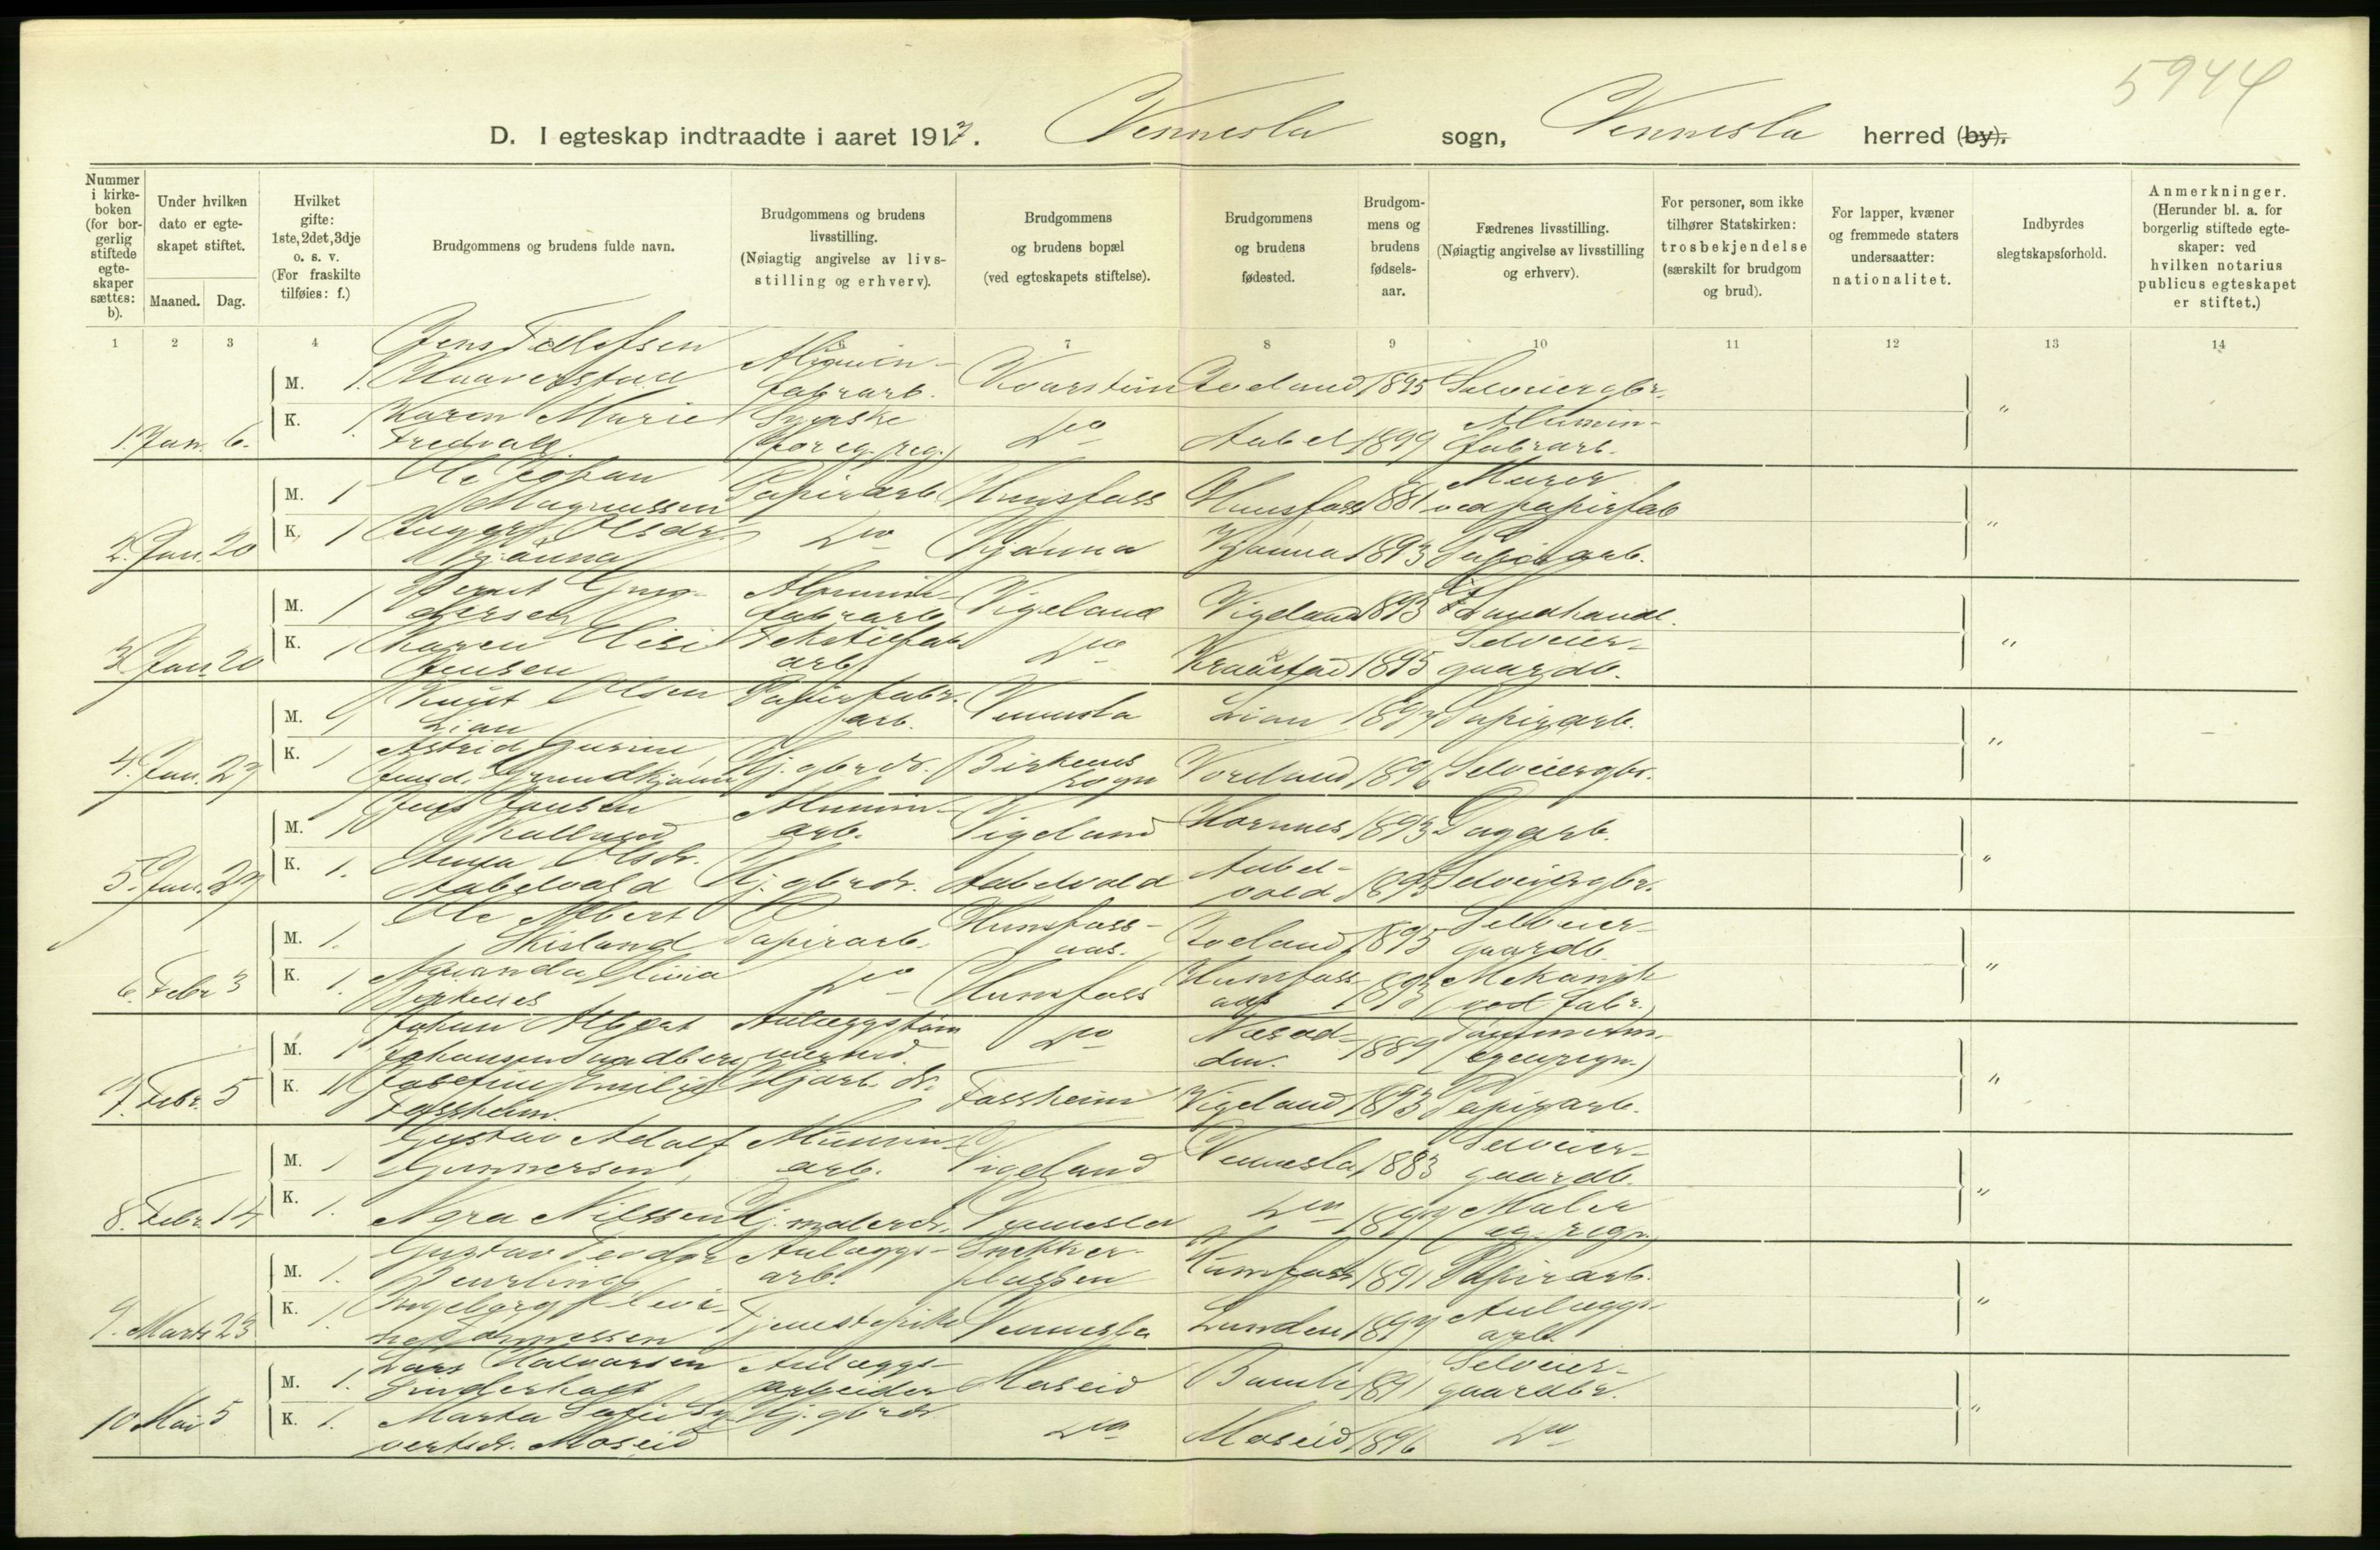 5944
D. I egteskap indtraadte i aaret 1917. Vennesla sogn, Vennesla herred (by).
Nummer i kirkeboken (for borgerlig stiftede egteskaper sættes: b).
Under hvilken dato er egteskapet stiftet.
Maaned. Dag.
Hvilket gifte: 1ste, 2det, 3dje o. s. v. (For fraskilte tilføies: f.)
Brudgommens og brudens fulde navn.
Brudgommens og brudens livsstilling. (Nøiagtig angivelse av livsstilling og erhverv).
Brudgommens og brudens bopæl (ved egteskapets stiftelse).
Brudgommens og brudens fødested.
Brudgommens og brudens fødselsaar.
Fædrenes livsstilling. (Nøiagtig angivelse av livsstilling og erhverv).
For personer, som ikke tilhører Statskirken: trosbekjendelse (særskilt for brudgom og brud).
For lapper, kvæner og fremmede staters undersaatter: nationalitet.
Indbyrdes slegtskapsforhold.
Anmerkninger. (Herunder bl. a. for borgerlig stiftede egteskaper: ved hvilken notarius publicus egteskapet er stiftet.)
1 2 3 4 6 7 8 9 10 11 12 13 14
Jens Tellefsen
M. 1. Alumin- fabrarb. Kvarstein 1895 Selveiergbr.
K. 1. Karen Marie Syerske (for eg. reg.) Do Aabel 1899 Alumin- fabrarb. "
1. Jan. 6.
M. 1 Ole Johan Magnussen Papirarb Hunsfoss Hunsfoss 1881 Murer ved papirfab
K. 1 Olsdr. Do 1893 Papirarb. "
2. Jan. 20
M. 1 Bernt Gundersen Alumin- fabrarb Vigeland Vigeland 1893 Landhandl.
K. 1 Karen Elise Jensen arb Do 1895 Selveier- gaardb. "
3. Jan. 20
M. 1 Knut Olsen Lian Papirfabr. arb. Vennesla Lian Papirarb.
K. 1 Astrid Gurine Hj. gbrdr. Birkenes sogn 1896 Selveiergbr. "
4. Jan. 27
M. 1 Jens Jensen Alumin- arb. Vigeland Hornnes 1893 Dagarb.
K. 1. Olsdr. Aabelvold Hj. gbrdr. Aabelvold Aabel- vold 1895 Selveiergbr. "
5. Jan. 27
M. 1. Ole Albert Skisland Papirarb. Hunsfoss- aas. 1895 Selveier- gaardb.
K. 1. Amanda Olivia Birkenes Do Hunsfoss Hunsfoss aas 1893 Mekanik (ved fabr.) "
6. Febr 3
M. 1 Johan Albert Johansen Do 1889 Tømmerm. (egenregn.)
K. 1 Josefine Emilie Fossheim. Hj. arb. dr. Fossheim Vigeland 1893 Papirarb. "
7. Febr. 5
M. 1 Gustav Adolf Gunnersen, Alumin- arb. Vigeland Vennesla 1883 Selveier- gaardb.
K. 1. Nora Nilssen Hj. malerdr. Vennesla Do Maler (eg. regn.) "
8. Febr. 14
M. 1. Gustav Teodor Anlæggs- arb. Snekker- plassen Hunsfoss 1891 Papirarb.
K. 1. Ingeborg Tjenestepike Vennesla Lunden Anlæggs- arb. "
9. Marts 23
M. 1. Lars Halvorsen Anlæggs- arbeider Moseid Bamle 1891 Selveier- gaardbr.
K. 1. Marta Sofie Sy- vertsdr. Moseid Hj. gbrdr Do Moseid 1896 Do "
10 Mai 5